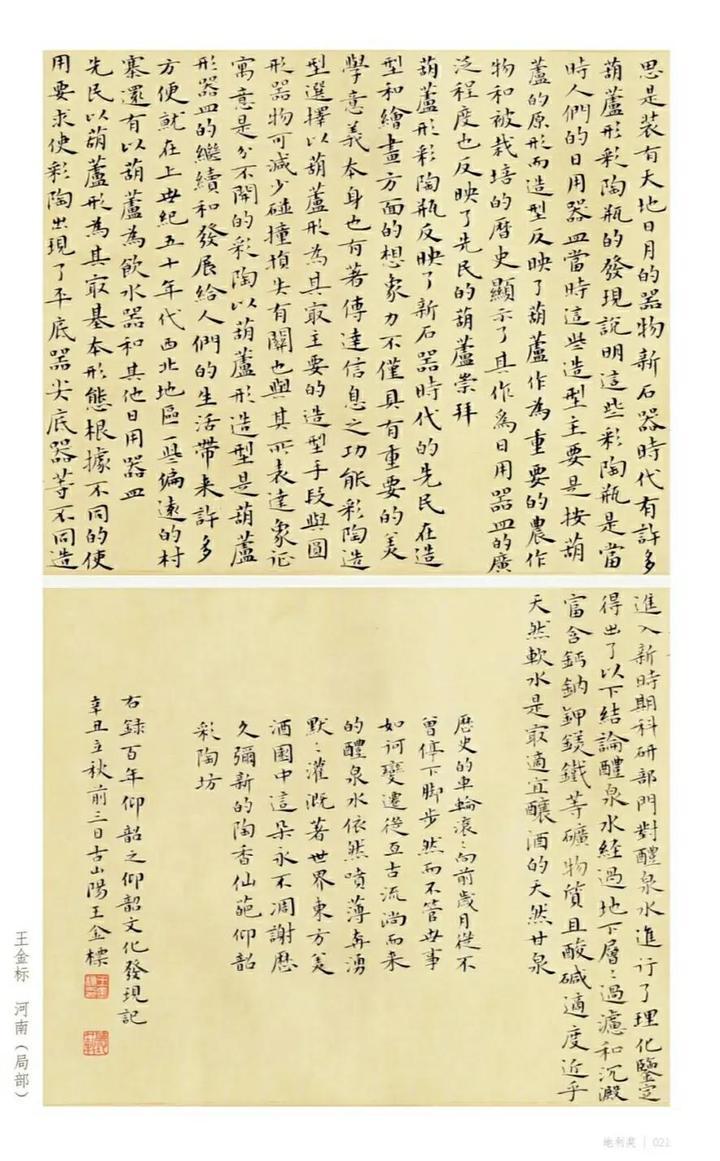 思是装有天地日月的器物新石器時代有許多
葫蘆形彩陶瓶的發現説明這些彩陶瓶是當
時人們的日用器皿當時這些造型主要是按葫
蘆的原形而造型反映了葫蘆作為重要的農作
物和被栽培的曆史顯示了其作為日用器皿的廣
泛程度也反映了先民的葫蘆崇拜
葫蘆形彩陶瓶反映了新石器時代的先民在造
型和繪畫方面的想象力不僅具有重要的美
學意義本身也有著傳達信息之功能彩陶造
型選擇以葫蘆形為其最主要的造型手段與圓
形器物可減少碰撞損失有關也與其所表達象征
寓意是分不開的彩陶以葫蘆形造型是葫蘆
形器皿的繼續和發展給人們的生活帶来許多
方便就在上世紀五十年代西北地區一些偏遠的村
寨還有以葫蘆為飲水器和其他日用器皿
先民以葫蘆形為其最基本形態根據不同的使
用要求使彩陶出現了平底器尖底器等不同造
進入新時期科研部門對醴泉水進行了理化鑒定
得出了以下結論醴泉水經過地下層〻過濾和沉澱
富含鈣鈉鉀鎂鐵等礦物質且酸碱適度近乎
天然軟水是最適宜釀酒的天然甘泉
歷史的車輪滾〻向前歲月從不
曾停下脚步然而不管世事
如何變遷從亙古流淌而来
的醴泉水依然噴薄奔湧
默〻灌溉著世界東方美
酒園中這朵永不凋謝歷
久彌新的陶香仙葩仰韶
彩陶坊
右録百年仰韶之仰韶文化發現記
辛丑立秋前三日古山陽王金標
王金标 河南（局部）
地利奖 | 021